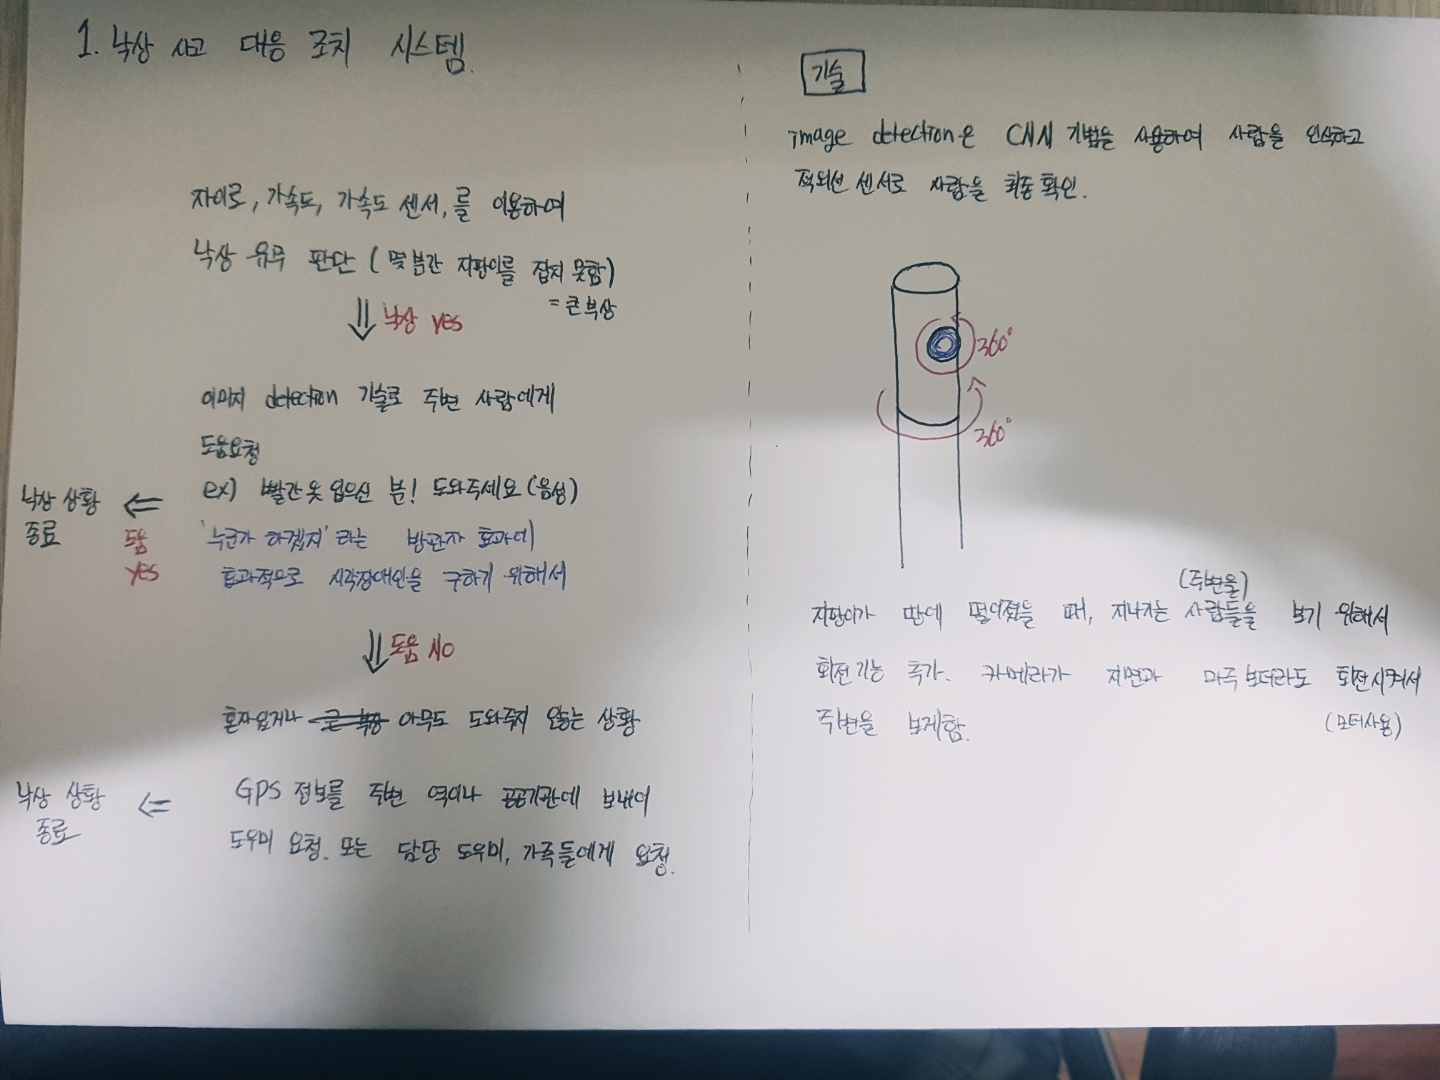 1. 낙상 사고 대응 조치 시스템.
자이로, 가속도, 가속도 센서, 를 이용하여
낙상 유무 판단 (몇 분간 지팡이를 잡지 못함)
= 큰 부상
낙상 yes
이미지 detection 기술로 주변 사람에게
도움요청
ex) 빨간 옷 입으신 분! 도와주세요 (음성)
'누군가 하겠지' 라는 방관자 효과에
효과적으로 시각장애인을 구하기 위해서
낙상 상황
종료
도움
yes
도움 No
혼자있거나 아무도 도와주지 않는 상황
GPS 정보를 주변 역이나 공공기관에 보내어
도우미 요청. 또는 담당 도우미, 가족들에게 요청.
낙상 상황
종료
기술
image detection은 CNN 기법을 사용하여 사람을 인식하고
적외선 센서로 사람을 최종 확인.
360°
360°
(주변을)
지팡이가 땅에 떨어졌을 때, 지나가는 사람들을 보기 위해서
회전기능 추가. 카메라가 지면과 마주보더라도 회전시켜서
주변을 보게함.
(모터사용)